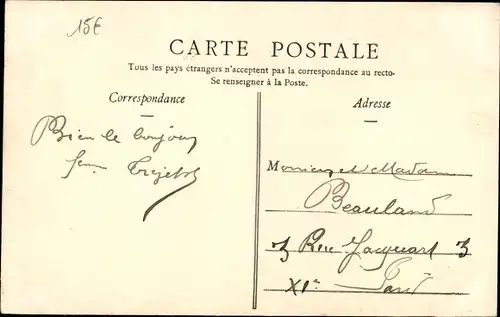 15€
CARTE POSTALE
Tous les pays étrangers n'acceptent pas la correspondance au recto.
Se renseigner à la Poste.
Correspondance
Adresse
Bien le bonjour
Monsieur et Madame
Beauland
3 Rue Jacquart 3
XIe Paris